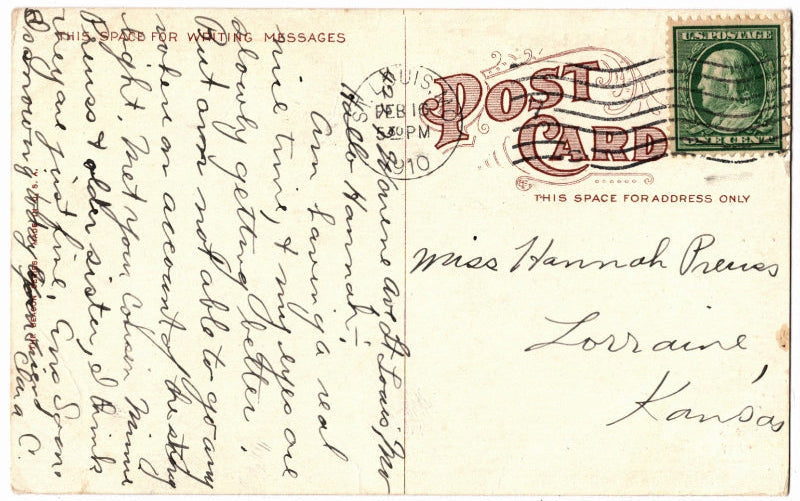 THIS SPACE FOR WRITING MESSAGES
Ave St Louis, Mo
Hello Hannah;—
Am having a real
nice time, & my eyes are
slowly getting better.
But am not able to go any
on account of the string
light. Met your Cousin Minnie
Preuss & older sister, I think
They are just fine, Ems Spom.
Is snowing today. Your friend
Clara C.
POST
CARD
ST. LOUIS, MO.
FEB 16
5 30 PM
1910
U.S. POSTAGE
ONE CENT
THIS SPACE FOR ADDRESS ONLY
Miss Hannah Preuss
Lorraine,
Kansas